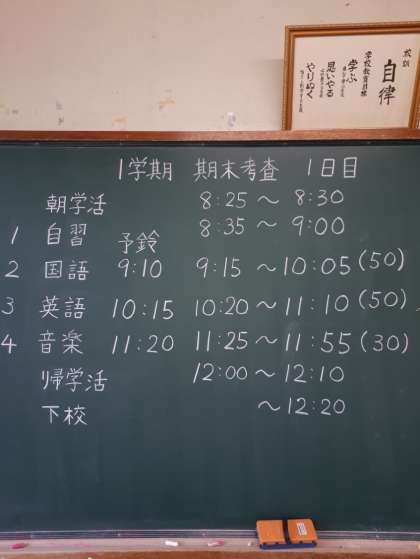 校訓
自律
学校教育目標
学ぶ
思いやる
やりぬく
1学期 期末考査 1日目
朝学活 8:25 〜 8:30
1 自習 8:35 〜 9:00
予鈴
2 国語 9:10 9:15 〜 10:05 (50)
3 英語 10:15 10:20 〜 11:10 (50)
4 音楽 11:20 11:25 〜 11:55 (30)
帰学活 12:00 〜 12:10
下校 〜 12:20